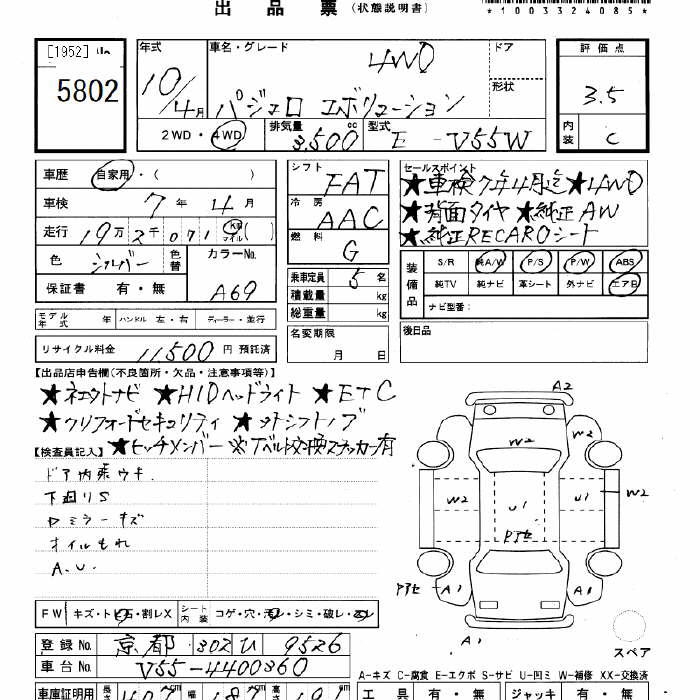 出品票 (状態説明書)
*1003324085*
[1952]
5802
年式 車名・グレード ドア 評価点
4WD
10/4月 パジェロ エボリューション 形状 3.5
2WD・4WD 排気量 3,500 cc 型式 E-V55W 内装 C
車歴 自家用・( )
車検 7年4月
走行 19万2千071 Km マイル ( )
色 シルバー 色替 カラーNo. A69
保証書 有・無
モデル年式 年 ハンドル 左・右 ディーラー・並行
リサイクル料金 11,500 円 預託済
シフト FAT
冷房 AAC
燃料 G
乗車定員 5名
積載量 kg
総重量 kg
名変期限 月 日
セールスポイント
★車検7年4月迄★4WD
★背面タイヤ★純正AW
★純正RECAROシート
装備品 S/R 純A/W P/S P/W ABS
純TV 純ナビ 革シート 外ナビ エアB
ナビ型番:
後日品
【出品店申告欄(不良箇所・欠品・注意事項等)】
★ネエウトナビ ★HIDヘッドライト ★ETC
★クリフォードセキュリティ ★外シフトノブ
★ヒッチメンバー ※Tベルト交換ステッカー有
【検査員記入】
ドア内張ウキ
下廻りS
ロミラーキズ
オイルもれ
A.U.
A2
W2 W2
W2 U1 U1 W2
アトセ
アトセ A1 A1
A1
スペア
FW キズ・トビ石・割レX シート内装 コゲ・穴・汚レ・シミ・破レ・スレ
登録No. 京都 302 ひ 9526
車台No. V55-4400360
A-キズ C-腐食 E-エクボ S-サビ U-凹ミ W-補修 XX-交換済
車庫証明用 長さ 407 幅 187 高さ 191
工具 有・無 ジャッキ 有・無